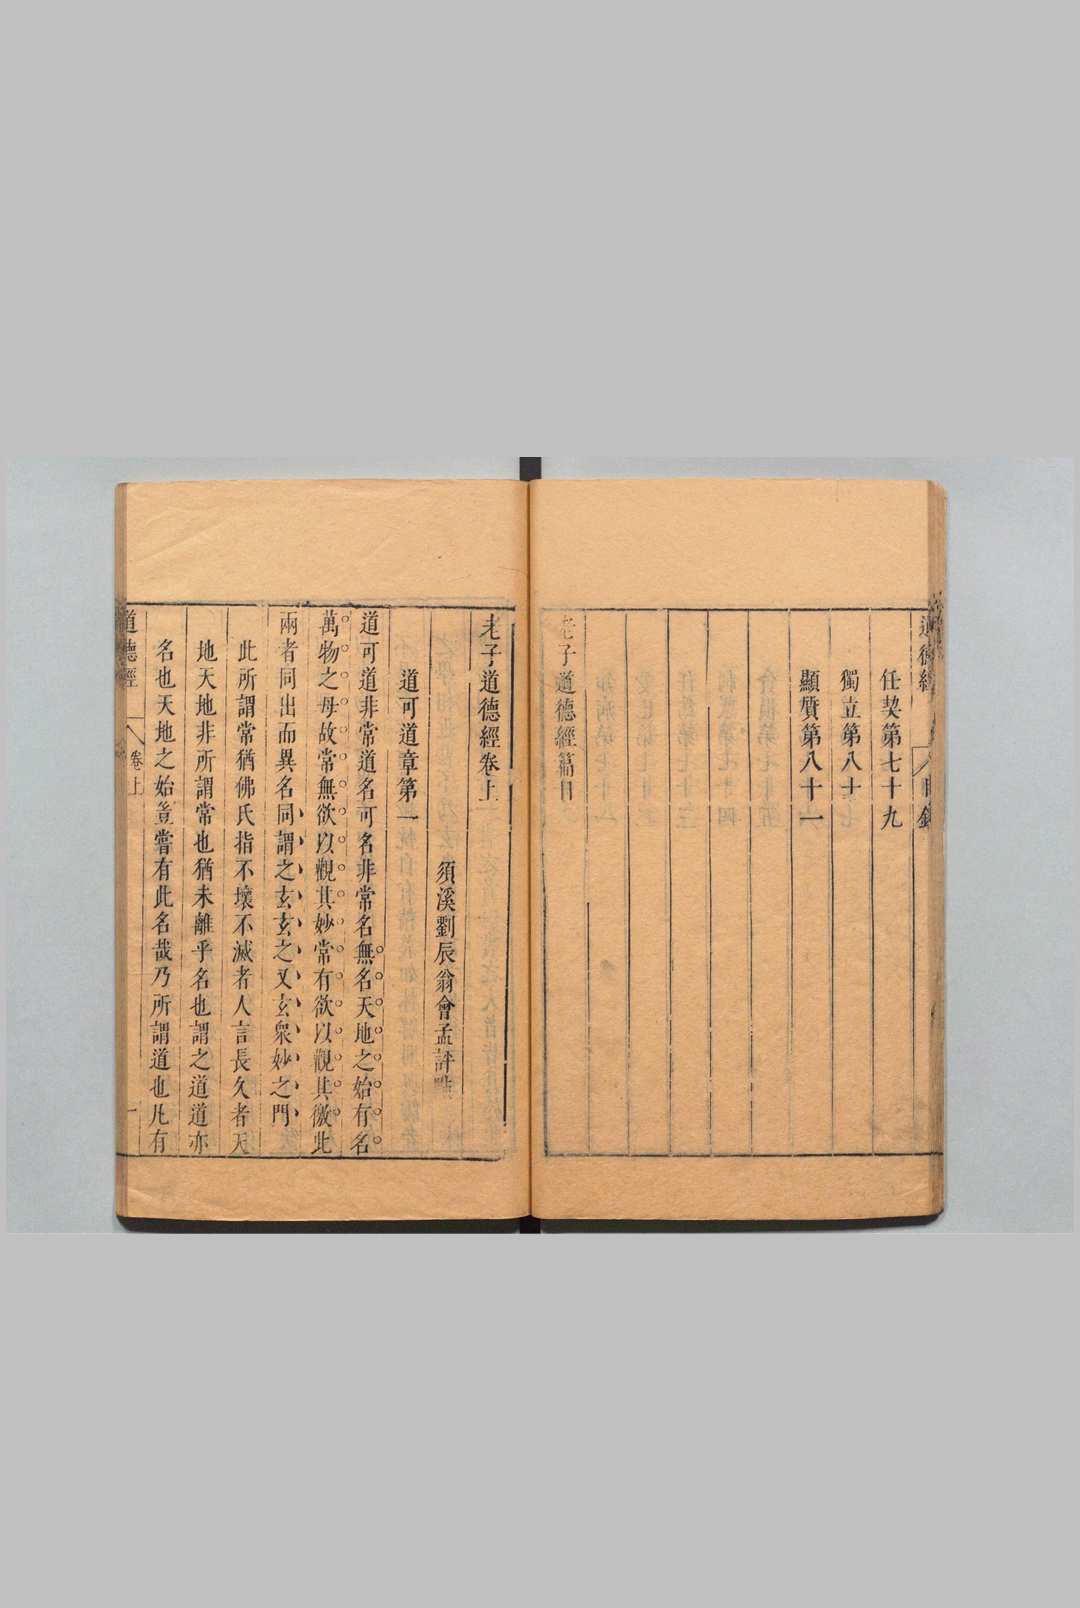 道德經 目錄
任契第七十九
獨立第八十
顯質第八十一
老子道德經篇目
老子道德經卷上
須溪劉辰翁會孟評點
道可道章第一
道可道非常道名可名非常名無名天地之始有名
萬物之母故常無欲以觀其妙常有欲以觀其徼此
兩者同出而異名同謂之玄玄之又玄衆妙之門
此所謂常猶佛氏指不壞不滅者人言長久者天
地天地非所謂常也猶未離乎名也謂之道道亦
名也天地之始豈嘗有此名哉乃所謂道也凡有
道德經 卷上 一